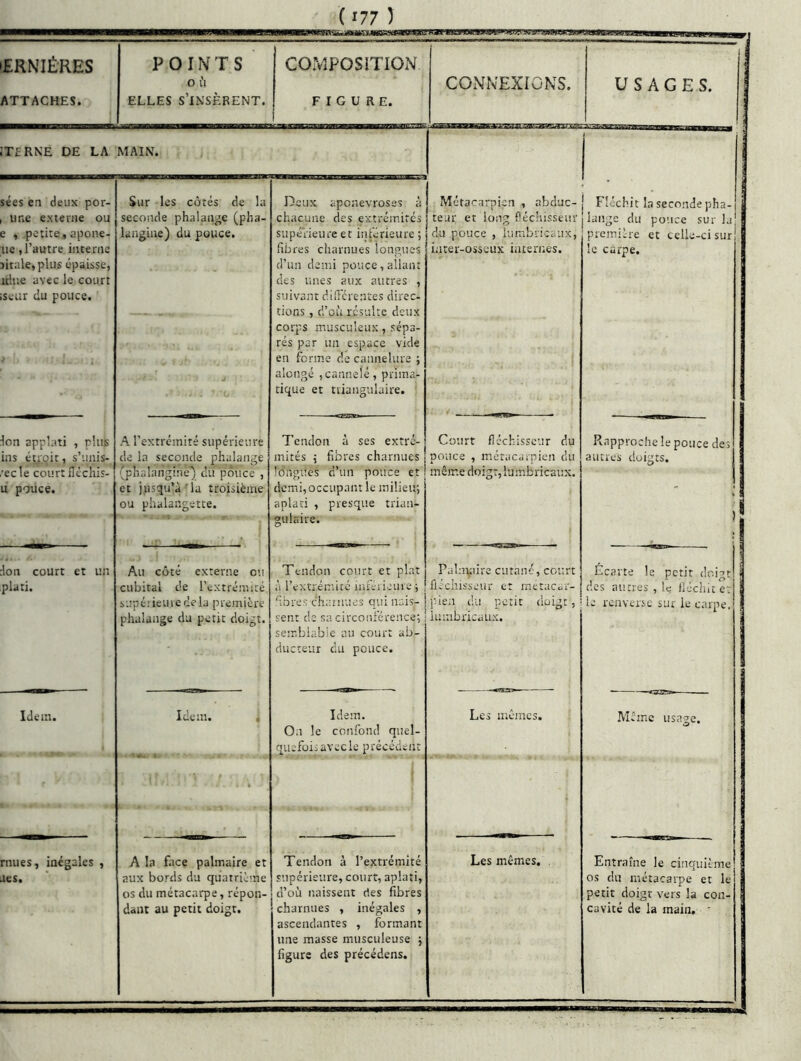 (177)
ERNIÈRES
ATTACHES.
POINTS
où
ELLES S'INSÈRENT.
COMPOSITION
FIGURE.
CONNEXIONS.
USAGES.
TERNE DE LA MAIN.
sées en deux por-
, une externe ou
e , petite, apone-
ue , l'autre interne
itale, plus épaisse,
avec le court
sseur du pouce.
Sur les côtés de la
seconde phalange (pha-
langine) du pouce.
Deux aponevroses à
chacune des extrémités
supérieure et inférieure ;
fibres charnues longues
d'un demi pouce, allant
des unes aux autres ,
suivant différentes direc-
tions , d'où résulte deux
corps musculeux , sépa-
rés par un espace vide
en forme de cannelure ;
alongé , cannelé , prima-
tique et triangulaire.
Métacarpien , abduc-
teur et long fléchisseur
du pouce , lumbricaux,
inter-osseux internes.
Fléchit la seconde pha-
lange du pouce sur la
première et celle-ci sur
le carpe.
don applati , plus
ins étroit, s'unis-
vec le court fléchis-
u pouce.
A l'extrémité supérieure
de la seconde phalange
(phalangine) du pouce ,
et jusqu'à la troisième
ou phalangette.
Tendon à ses extré-
mités ; fibres charnues
longues d'un pouce et
demi, occupant le milieu;
aplati , presque trian-
gulaire.
Court fléchisseur du
pouce , métacarpien du
même doigt, lumbricaux.
Rapproche le pouce des
autres doigts.
don court et un
plati.
Au côté externe ou
cubital de l'extrémité
supérieure de la première
phalange du petit doigt.
Tendon court et plat
à l'extrémité inférieure ;
fibres charnues qui nais-
sent de sa circonférence;
semblable au court ab-
ducteur du pouce.
Palmaire cutané, court
fléchisseur et metacar-
pien du petit doigt,
lumbricaux.
Écarte le petit doigt
des autres , le fléchit et
le renverse sur le carpe.
Idem.
Idem.
Idem.
On le confond quel-
quefois avec le précédent
Les mêmes.
Même usage.
rnues, inégales ,
ues.
A la face palmaire et
aux bords du quatrième
os du métacarpe, répon-
dant au petit doigt.
Tendon à l'extrémité
supérieure, court, aplati,
d'où naissent des fibres
charnues , inégales ,
ascendantes , formant
une masse musculeuse ;
figure des précédens.
Les mêmes.
Entraîne le cinquième
os du métacarpe et le
petit doigt vers la con-
cavité de la main.